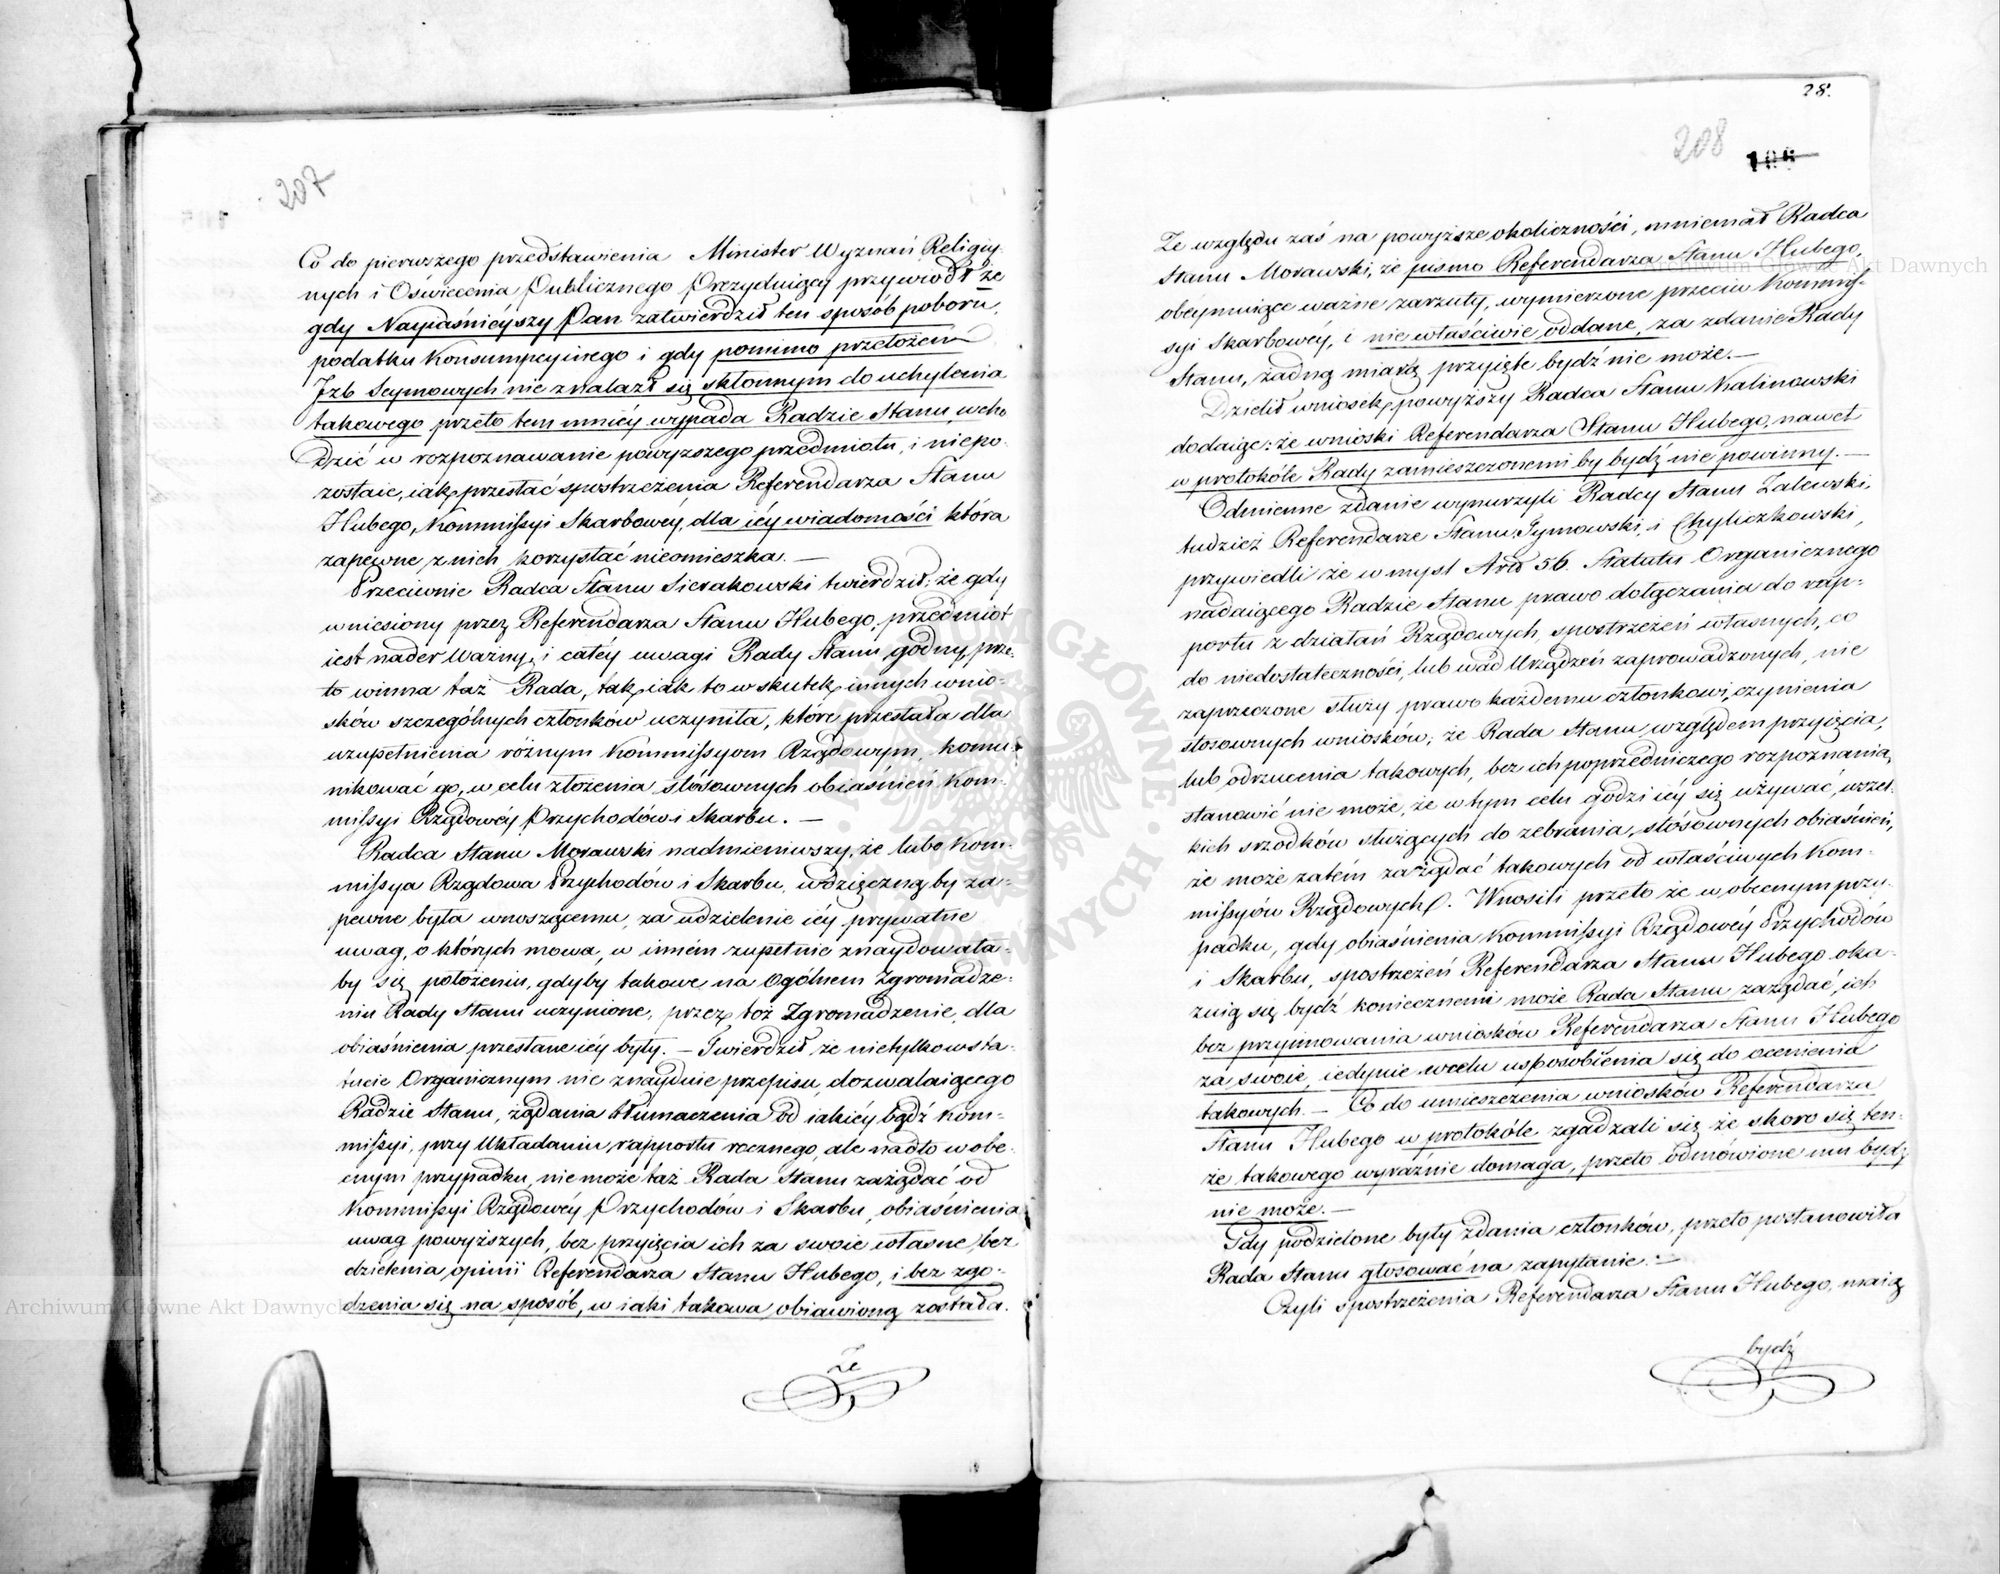 207
Co do pierwszego przedstawienia Minister Wyznań Religiy-
nych i Oświecenia Publicznego Prezyduiący przywiódł że
gdy Nayiaśnieyszy Pan zatwierdził ten sposób poboru,
podatku Konsumpcyinego i gdy pomimo przełożeń
Izb Seymowych nie znalazł się skłonnym do uchylenia
takowego przeto tem mniéy wypada Radzie Stanu wcho
dzić w rozpoznawanie powyższego przedmiotu, i niepo-
zostaie, iak przesłać spostrzeżenia Referendarza Stanu
Hubego, Kommissyi Skarbowéy, dla iéy wiadomości która
zapewne z nich korzystać nieomieszka. —
Przeciwnie Radca Stanu Sierakowski twierdził; że gdy
wniesiony przez Referendarza Stanu Hubego, przedmiot
iest nader Ważny, i całéy uwagi Rady Stanu godny, prze-
to winna taż Rada, tak iak to w skutek innych wnio-
sków szczególnych członków uczyniła, które przesłała dla
uzupełnienia różnym Kommissyom Rządowym, komu-
nikować go, w celu złożenia stósownych obiaśnień Kom-
missyi Rządowéy Przychodów i Skarbu. —
Radca Stanu Morawski nadmieniwszy, że lubo Kom-
missya Rządowa Przychodów i Skarbu, wdzięczną by za-
pewne była wnoszącemu, za udzielenie iéy prywatne
uwag, o których mowa, w inném zupełnie znaydowała-
by się położeniu, gdyby takowe na Ogólnem Zgromadze-
niu Rady Stanu uczynione, przez toż Zgromadzenie, dla
obiaśnienia przesłane iéy były. — Twierdził, że nietylko w sta-
tucie Organicznym nie znayduie przepisu, dozwalaiącego
Radzie Stanu, żądania tłumaczenia od iakiéy bądź Kom-
missyi, przy Układaniu rapportu rocznego, ale nadto w obe-
cnym przypadku, nie może taż Rada Stanu zażądać od
Kommissyi Rządowéy Przychodów i Skarbu, obiaśnienia
uwag powyższych, bez przyięcia ich za swoie własne, bez
dzielenia opinii Referendarza Stanu Hubego, i bez zgo-
dzenia się na sposób, w iaki takowa obiawioną została.
Ze
28.
208
Ze względu zaś na powyższe okoliczności, mniemał Radca
Stanu Morawski, że pismo Referendarza Stanu Hubego,
obeymuiące ważne zarzuty, wymierzone przeciw Kommis-
syi Skarbowéy, i nie właściwie oddane, za zdanie Rady
Stanu, żadną miarą przyięte bydź nie może. —
Dzielił wniosek powyższy Radca Stanu Kalinowski
dodaiąc: że wnioski Referendarza Stanu Hubego, nawet
w protokóle Rady zamieszczonemi by bydź nie powinny. —
Odmienne zdanie wynurzyli Radcy Stanu Zalewski,
tudzież Referendarze Stanu Tymowski, i Chyliczkowski,
przywiedli że w myśl Artt 56. Statutu Organicznego
nadaiącego Radzie Stanu prawo dołączania do rap-
portu z działań Rządowych, spostrzeżeń własnych, co
do niedostateczności, lub wad Urządzeń zaprowadzonych, nie
zaprzeczone służy prawo każdemu członkowi, czynienia
stosownych wniosków; że Rada Stanu, względem przyięcia,
lub odrzucenia takowych, bez ich poprzedniczego rozpoznania,
stanowić nie może, że w tym celu godzi iéy się używać, wszel-
kich srzodków służących do zebrania, stósownych obiaśnień,
że może zatém zażądać takowych od właściwych Kom-
missyów Rządowych. Wnosili przeto że w obecnym przy-
padku, gdy obiaśnienia Kommissyi Rządowéy Przychodów
i Skarbu, spostrzeżeń Referendarza Stanu Hubego oka-
zuią się bydź koniecznemi może Rada Stanu zażądać, ich
bez przyimowania wniosków Referendarza Stanu Hubego
za swoie, iedynie w celu usposobienia się do ocenienia
takowych. — Co do umieszczenia wniosków Referendarza
Stanu Hubego w protokóle zgadzali się że skoro się ten-
że takowego wyraźnie domaga, przeto odmówione mu bydź
nie może. —
Gdy podzielone były zdania członków, przeto postanowiła
Rada Stanu głosować na zapytanie: —
Czyli spostrzeżenia Referendarza Stanu Hubego, maią
bydź
Archiwum Główne Akt Dawnych
Archiwum Główne Akt Dawnych